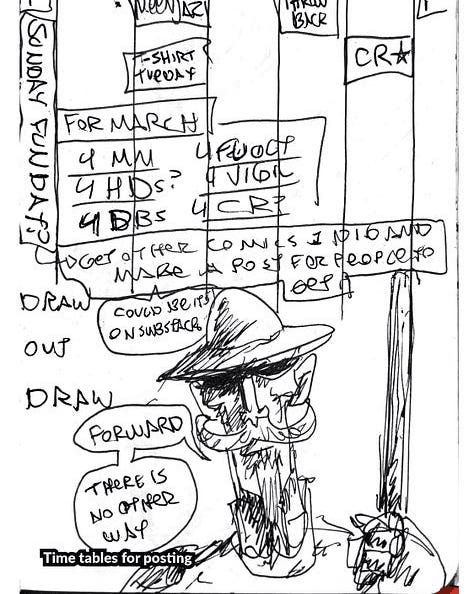 BACK
T-SHIRT
TUESDAY
CR★
SUNDAY FUNDAY?
FOR MARCH
4 MM
4 HDs?
4 DBS
4 CR?
→GET OTHER COMICS I DID AND
MAKE A POST FOR PEOPLE TO
GET
COULD BE ITS
ON SUBSTACK
DRAW
OUT
DRAW
FORWARD
THERE IS
NO OTHER
WAY
Time tables for posting